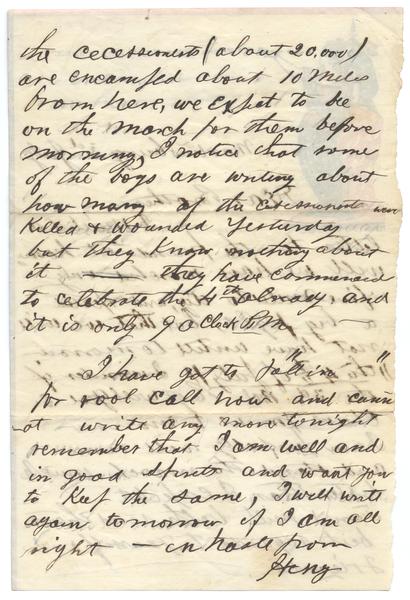 the cecessionests (about 20,000)
are encamped about 10 Miles
from here, we expect to be
on the march for them before
morning, I notice that some
of the boys are writing about
how many of the cecessionests were
killed & wounded Yesterday
but they know nothing about
it — they have commenced
to celebrate the 4th already, and
it is only 9 o clock P.M.
I have got to "fall in"
for rool call now and cann
ot write any more tonight
remember that I am well and
in good spirits and want you
to keep the same, I will write
again tomorrow if I am all
right — in haste from
Heny